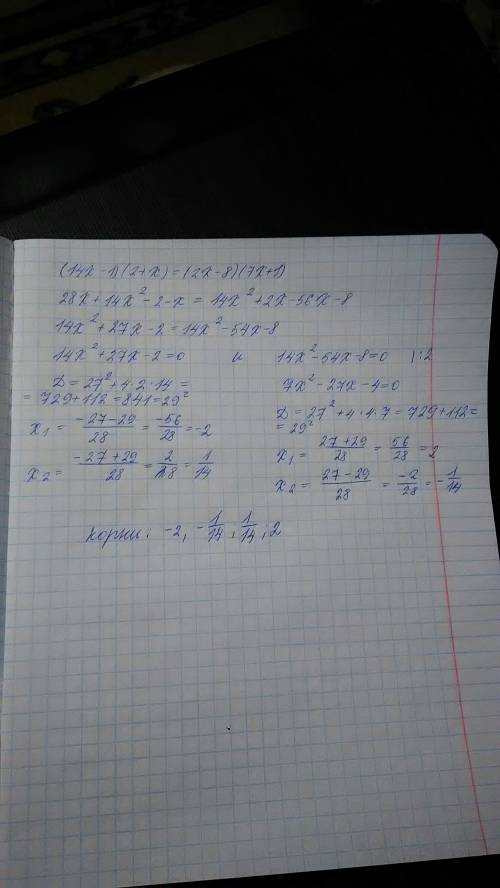 (14x-1)(2+x)=(2x-8)(7x+1)
28x+14x²-2-x = 14x²+2x-56x-8
14x²+27x-2=14x²-54x-8
14x²+27x-2=0 и 14x²-54x-8=0 |:2
D=27²+4·2·14=
=729+112=841=29²
x₁= (-27-29)/28 = -56/28 = -2
x₂= (-27+29)/28 = 2/28 = 1/14
7x²-27x-4=0
D=27²+4·4·7=729+112=
=29²
x₁= (27+29)/28 = 56/28 = 2
x₂= (27-29)/28 = -2/28 = -1/14
корни: -2, -1/14, 1/14, 2